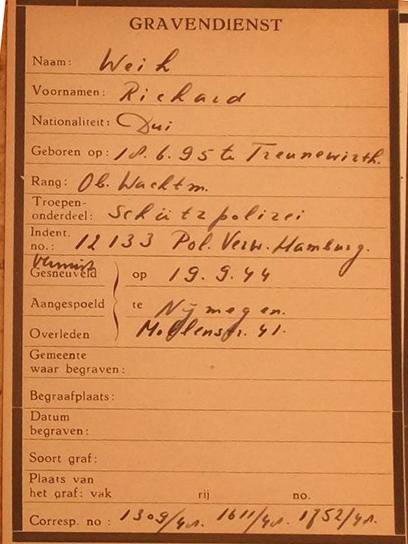 GRAVENDIENST
Naam: Weih
Voornamen: Richard
Nationaliteit: Dui
Geboren op: 18.6.95 te Treunewirth.
Rang: Ob. Wachtm.
Troepen-
onderdeel: Schützpolizei
Indent.
no.: 12133 Pol. Verw. Hamburg.
Vermist
Gesneuveld op 19.9.44
Aangespoeld te Nijmegen.
Overleden Mollenstr. 41.
Gemeente
waar begraven:
Begraafplaats:
Datum
begraven:
Soort graf:
Plaats van
het graf: vak rij no.
Corresp. no: 1309/48. 1611/48. 1752/48.